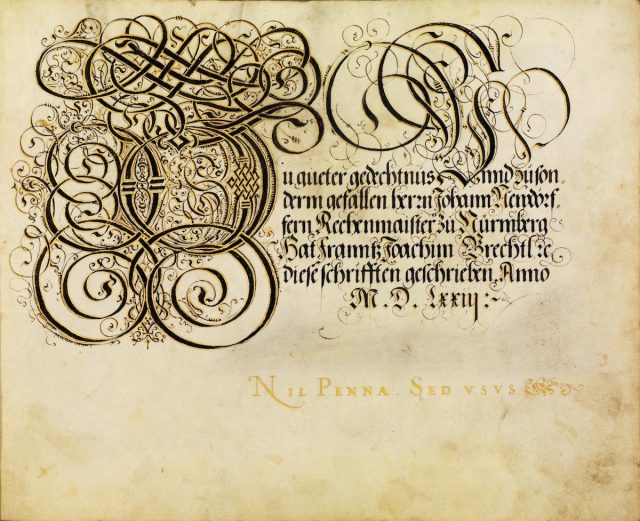 Zu gueter gedechtnus Vnnd zu son,
derm gefallen herrn Johann Neudörf,
fern Rechenmaister zu Nürmberg
Hat Franntz Joachim Brechtl ꝛc
diese schrifften geschrieben, Anno
M. D. Lxxiij :~
NIL PENNA. SED VSVS.